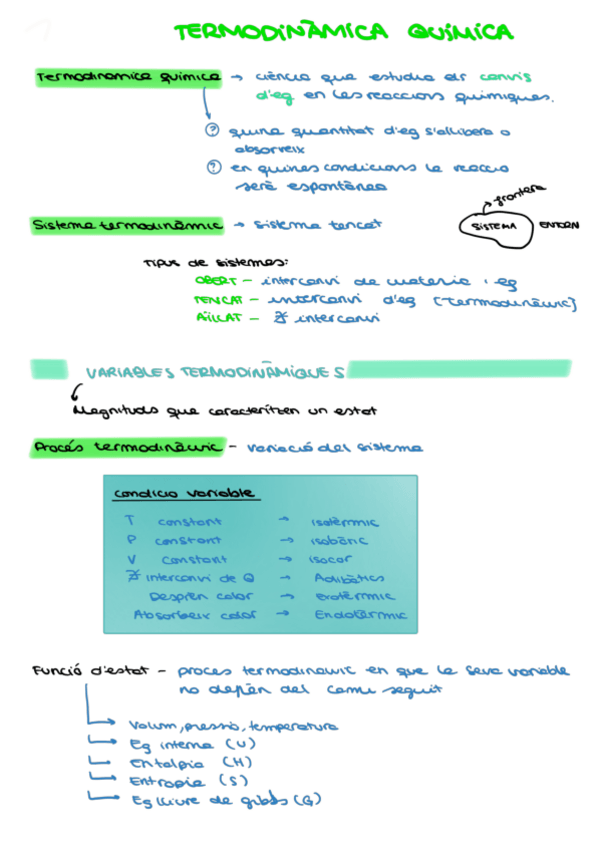 TERMODINÀMICA QUÍMICA
Termodinamica química → ciència que estudia els canvis
d'eg en les reaccions químiques.
? quina quantitat d'eg s'allibera o
absorveix
? en quines condicions la reacció
serà espontànea
frontera
Sistema termodinàmic → sistema tencat
SISTEMA ENTORN
TIPUS de sistemes:
OBERT - intercanvi de materia i eg
TENCAT - intercanvi d'eg [termodinàmic]
AÏLLAT - ∄ intercanvi
VARIABLES TERMODINÀMIQUES
Magnituds que caracteritzen un estat
Procés termodinàmic - variació del sistema
condicio variable
T constant → isotèrmic
P constant → isobàric
V constant → isocor
∄ intercanvi de Q → Adibàtics
Desprèn calor → exotèrmic
Absorbeix calor → Endotèrmic
Funció d'estat - proces termodinamic en que la seva variable
no depèn del camí seguit
→ Volum, pressió, temperatura
→ Eg interna (U)
→ Entalpia (H)
→ Entropia (S)
→ Eg lliure de gibbs (G)